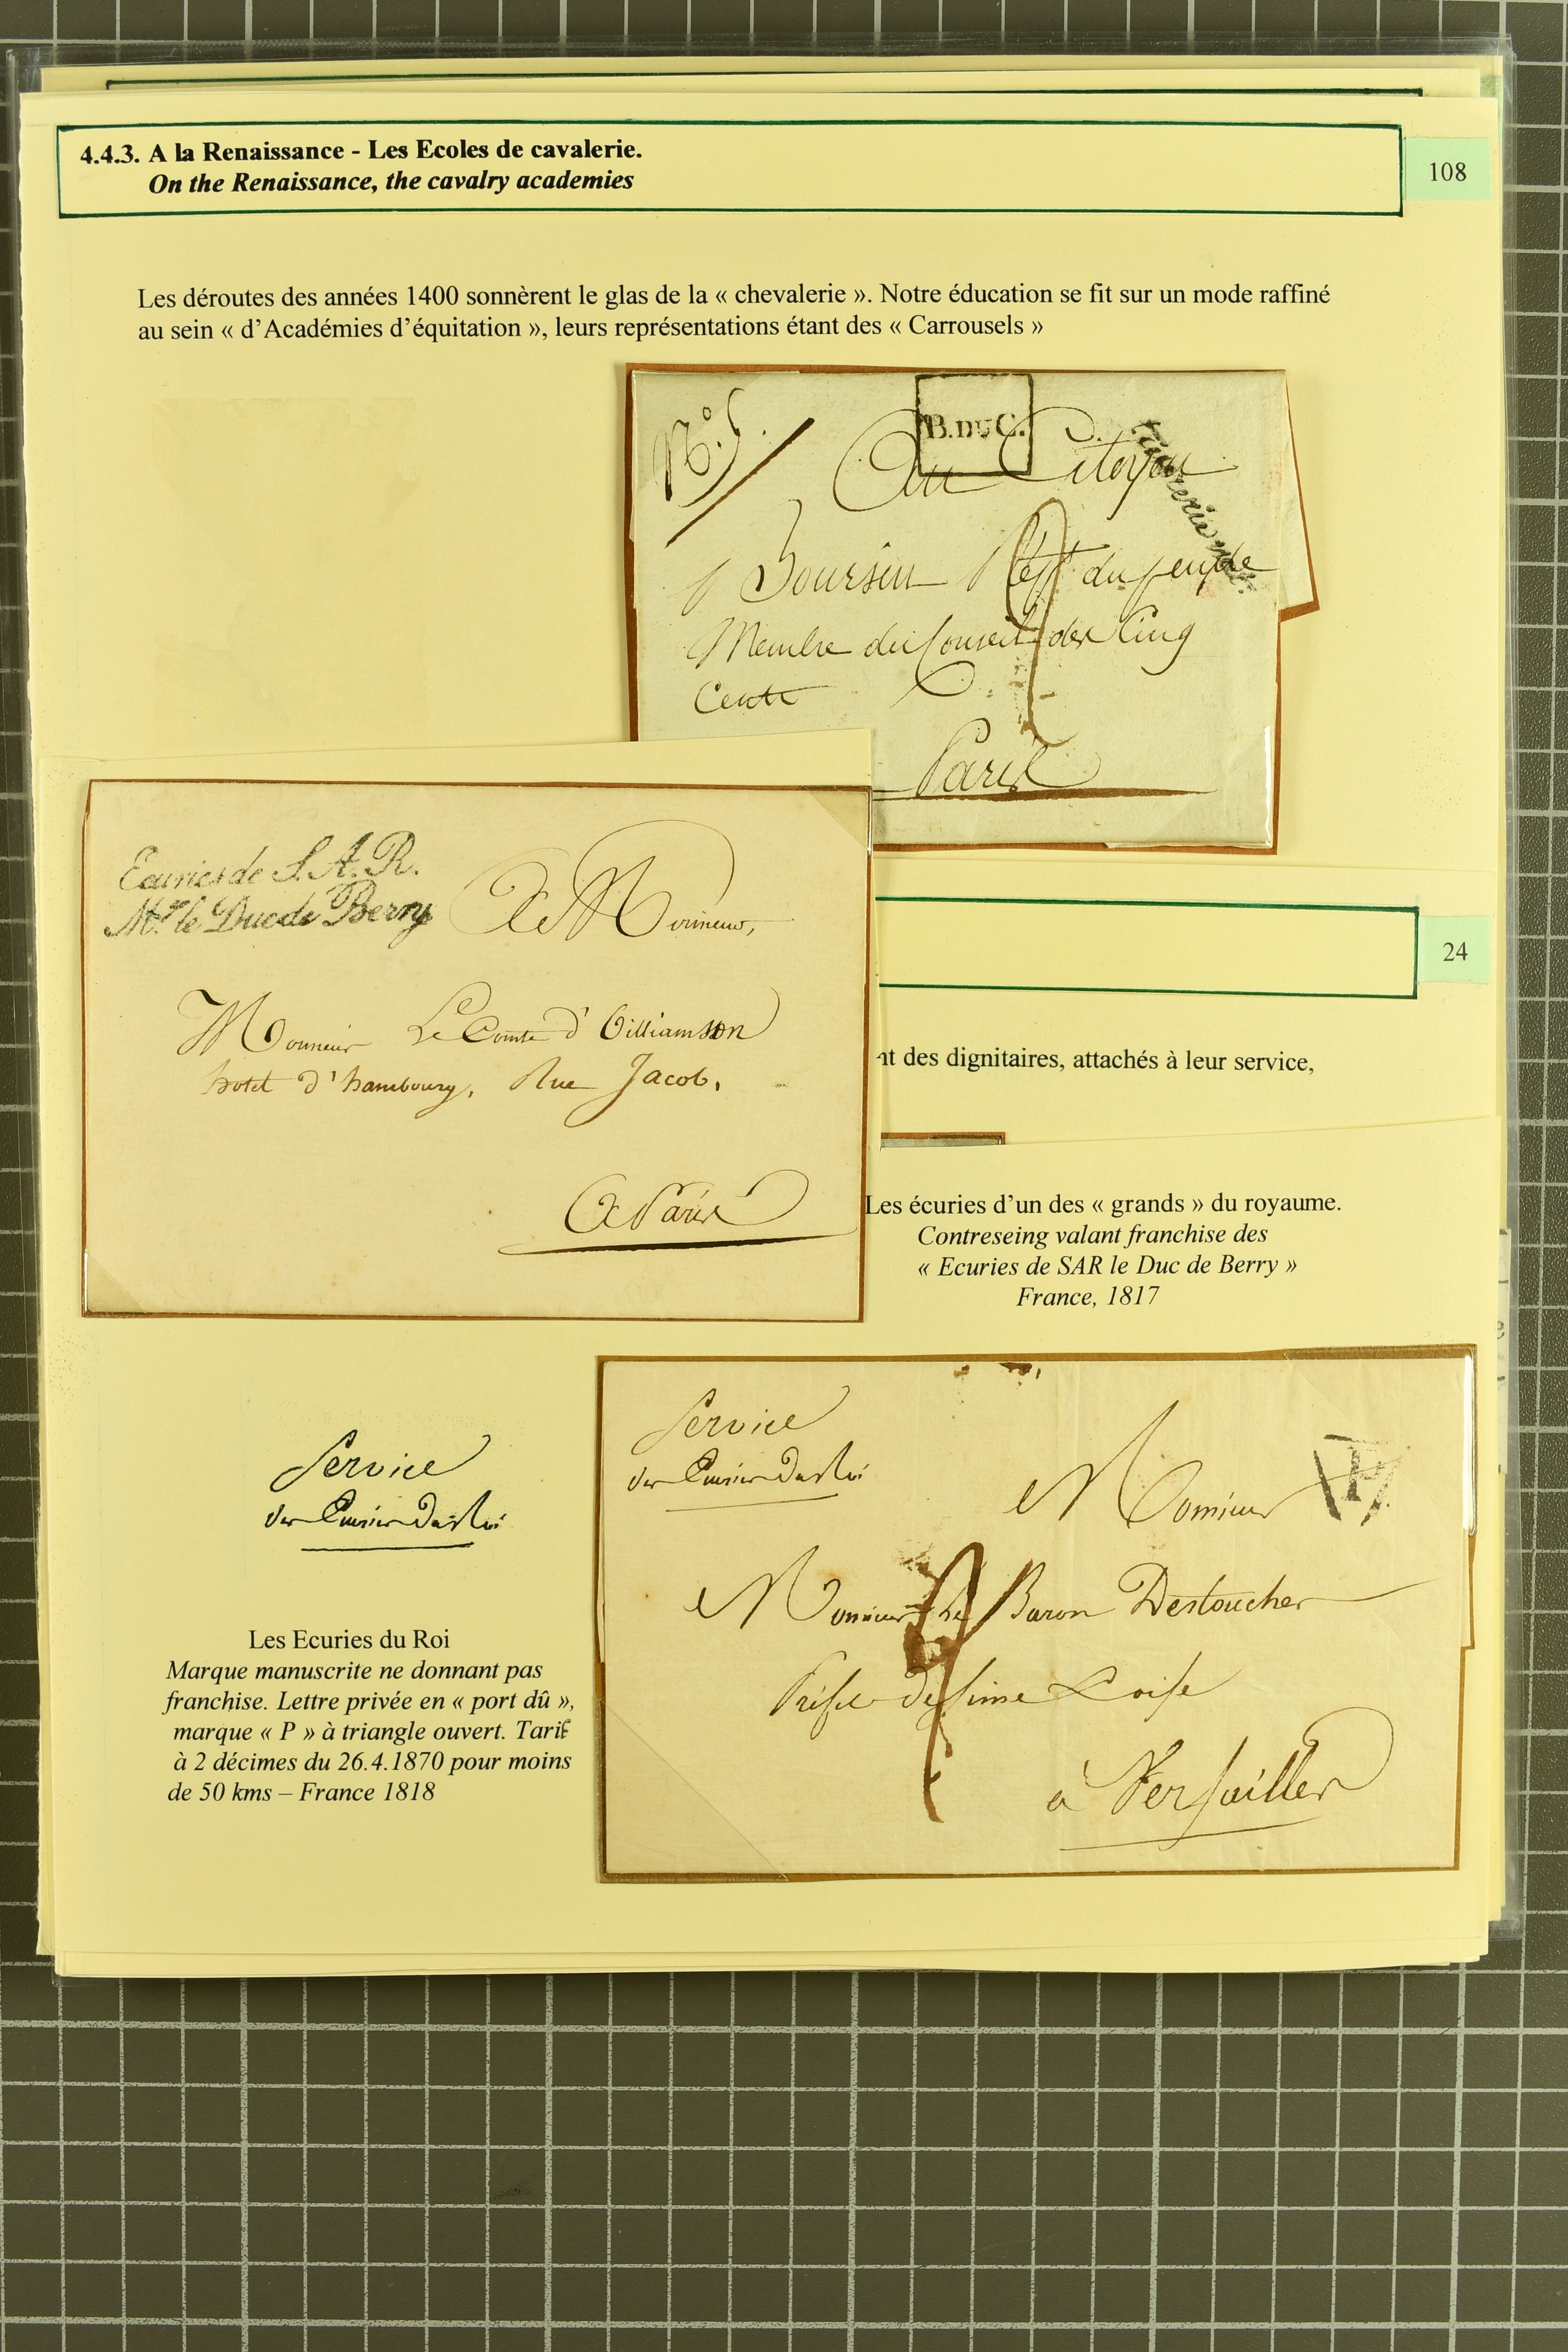 4.4.3. A la Renaissance - Les Ecoles de cavalerie.
On the Renaissance, the cavalry academies
108
Les déroutes des années 1400 sonnèrent le glas de la « chevalerie ». Notre éducation se fit sur un mode raffiné
au sein « d'Académies d'équitation », leurs représentations étant des « Carrousels »
B.DUC.
Au Citoyen
Boursin Rept du peuple
Membre du Conseil des Cinq
Cents
Paris
Ecuries de S. A. R.
Mgr le Duc de Berry
A Monsieur,
Monsieur Le Comte d' Oilliamson
hotel d'hambourg, Rue Jacob,
A Paris
24
nt des dignitaires, attachés à leur service,
Les écuries d'un des « grands » du royaume.
Contreseing valant franchise des
« Ecuries de SAR le Duc de Berry »
France, 1817
Service
des Ecuries Du Roi
Service
des Ecuries Du Roi
P
Monsieur
Monsieur Le Baron Destouches
Préfet de Seine & Oise
à Versailles
Les Ecuries du Roi
Marque manuscrite ne donnant pas
franchise. Lettre privée en « port dû »,
marque « P » à triangle ouvert. Tarif
à 2 décimes du 26.4.1870 pour moins
de 50 kms – France 1818